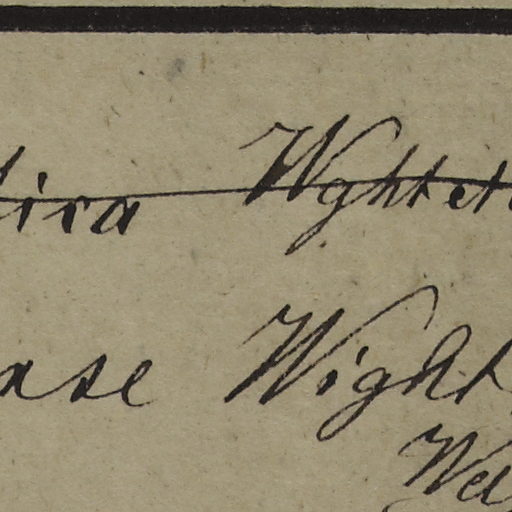 ira Wghtet
ase Wight
Wel